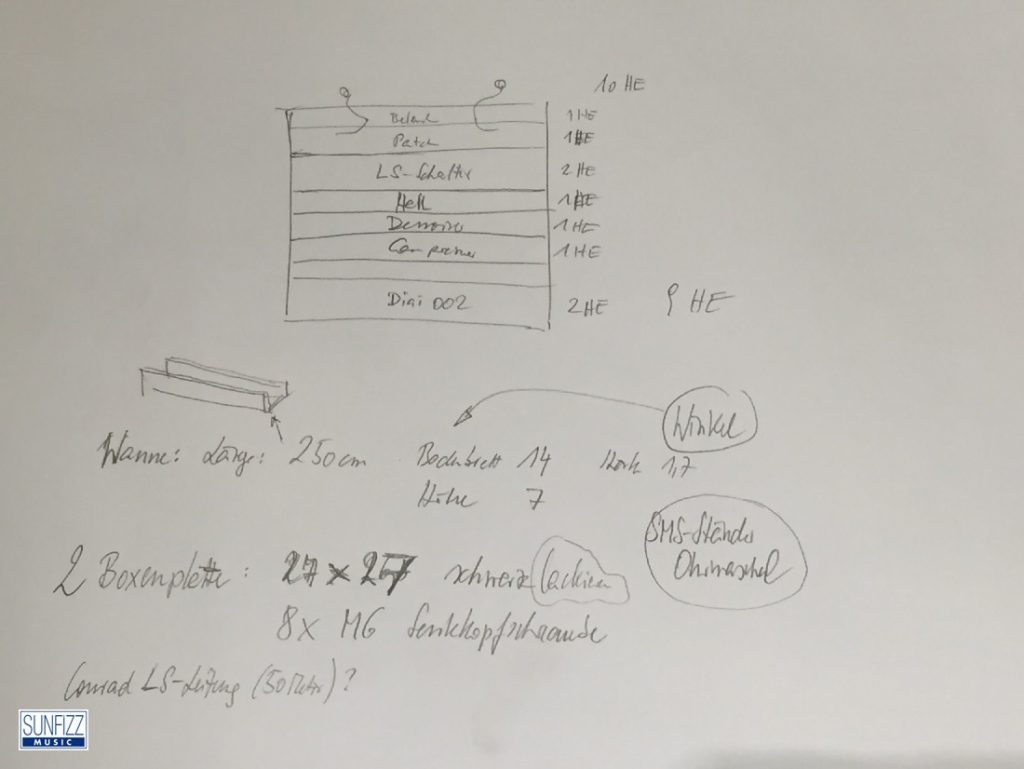 10 HE
1 HE
Patch 1 HE
LS-Schalter 2 HE
1 HE
Denoiser 1 HE
Compressor 1 HE
Digi 002 2HE 9 HE
Winkel
Wanne: Länge: 250cm Bodenbrett 14 1,7
Höhe 7
SMS-Ständer
2 Boxenplatte: 27 x 27 schwarz lackieren
8x M6 Senkkopfschraube
Conrad LS-Leitung (50 Meter)?
SUNFIZZ
MUSIC